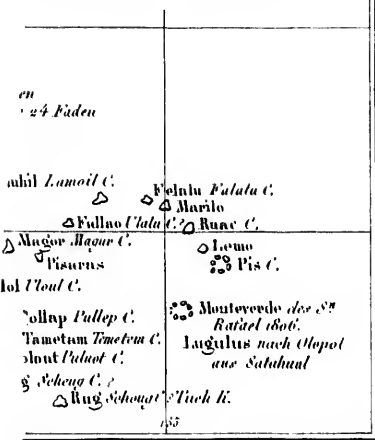 en
24 Faden
Lamoil C.
Felalu Falalu C.
Marilo
Fullao Ulalu C.? Ruac C.
Magor Magur C. Lemo
Pisaras Pis C.
lol Ploul C.
ollap Pullep C. Monteverde des Sn
Rafael 1806.
Tametam Temetem C. Lugulus nach Olopol
Puluot C. aus Satahual
g Scheug C.?
Rug Schoug C.? Tuch K.
155